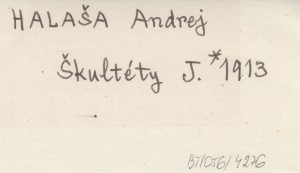 HALAŠA Andrej
Škultéty J. *1913
BT/OJG/4276